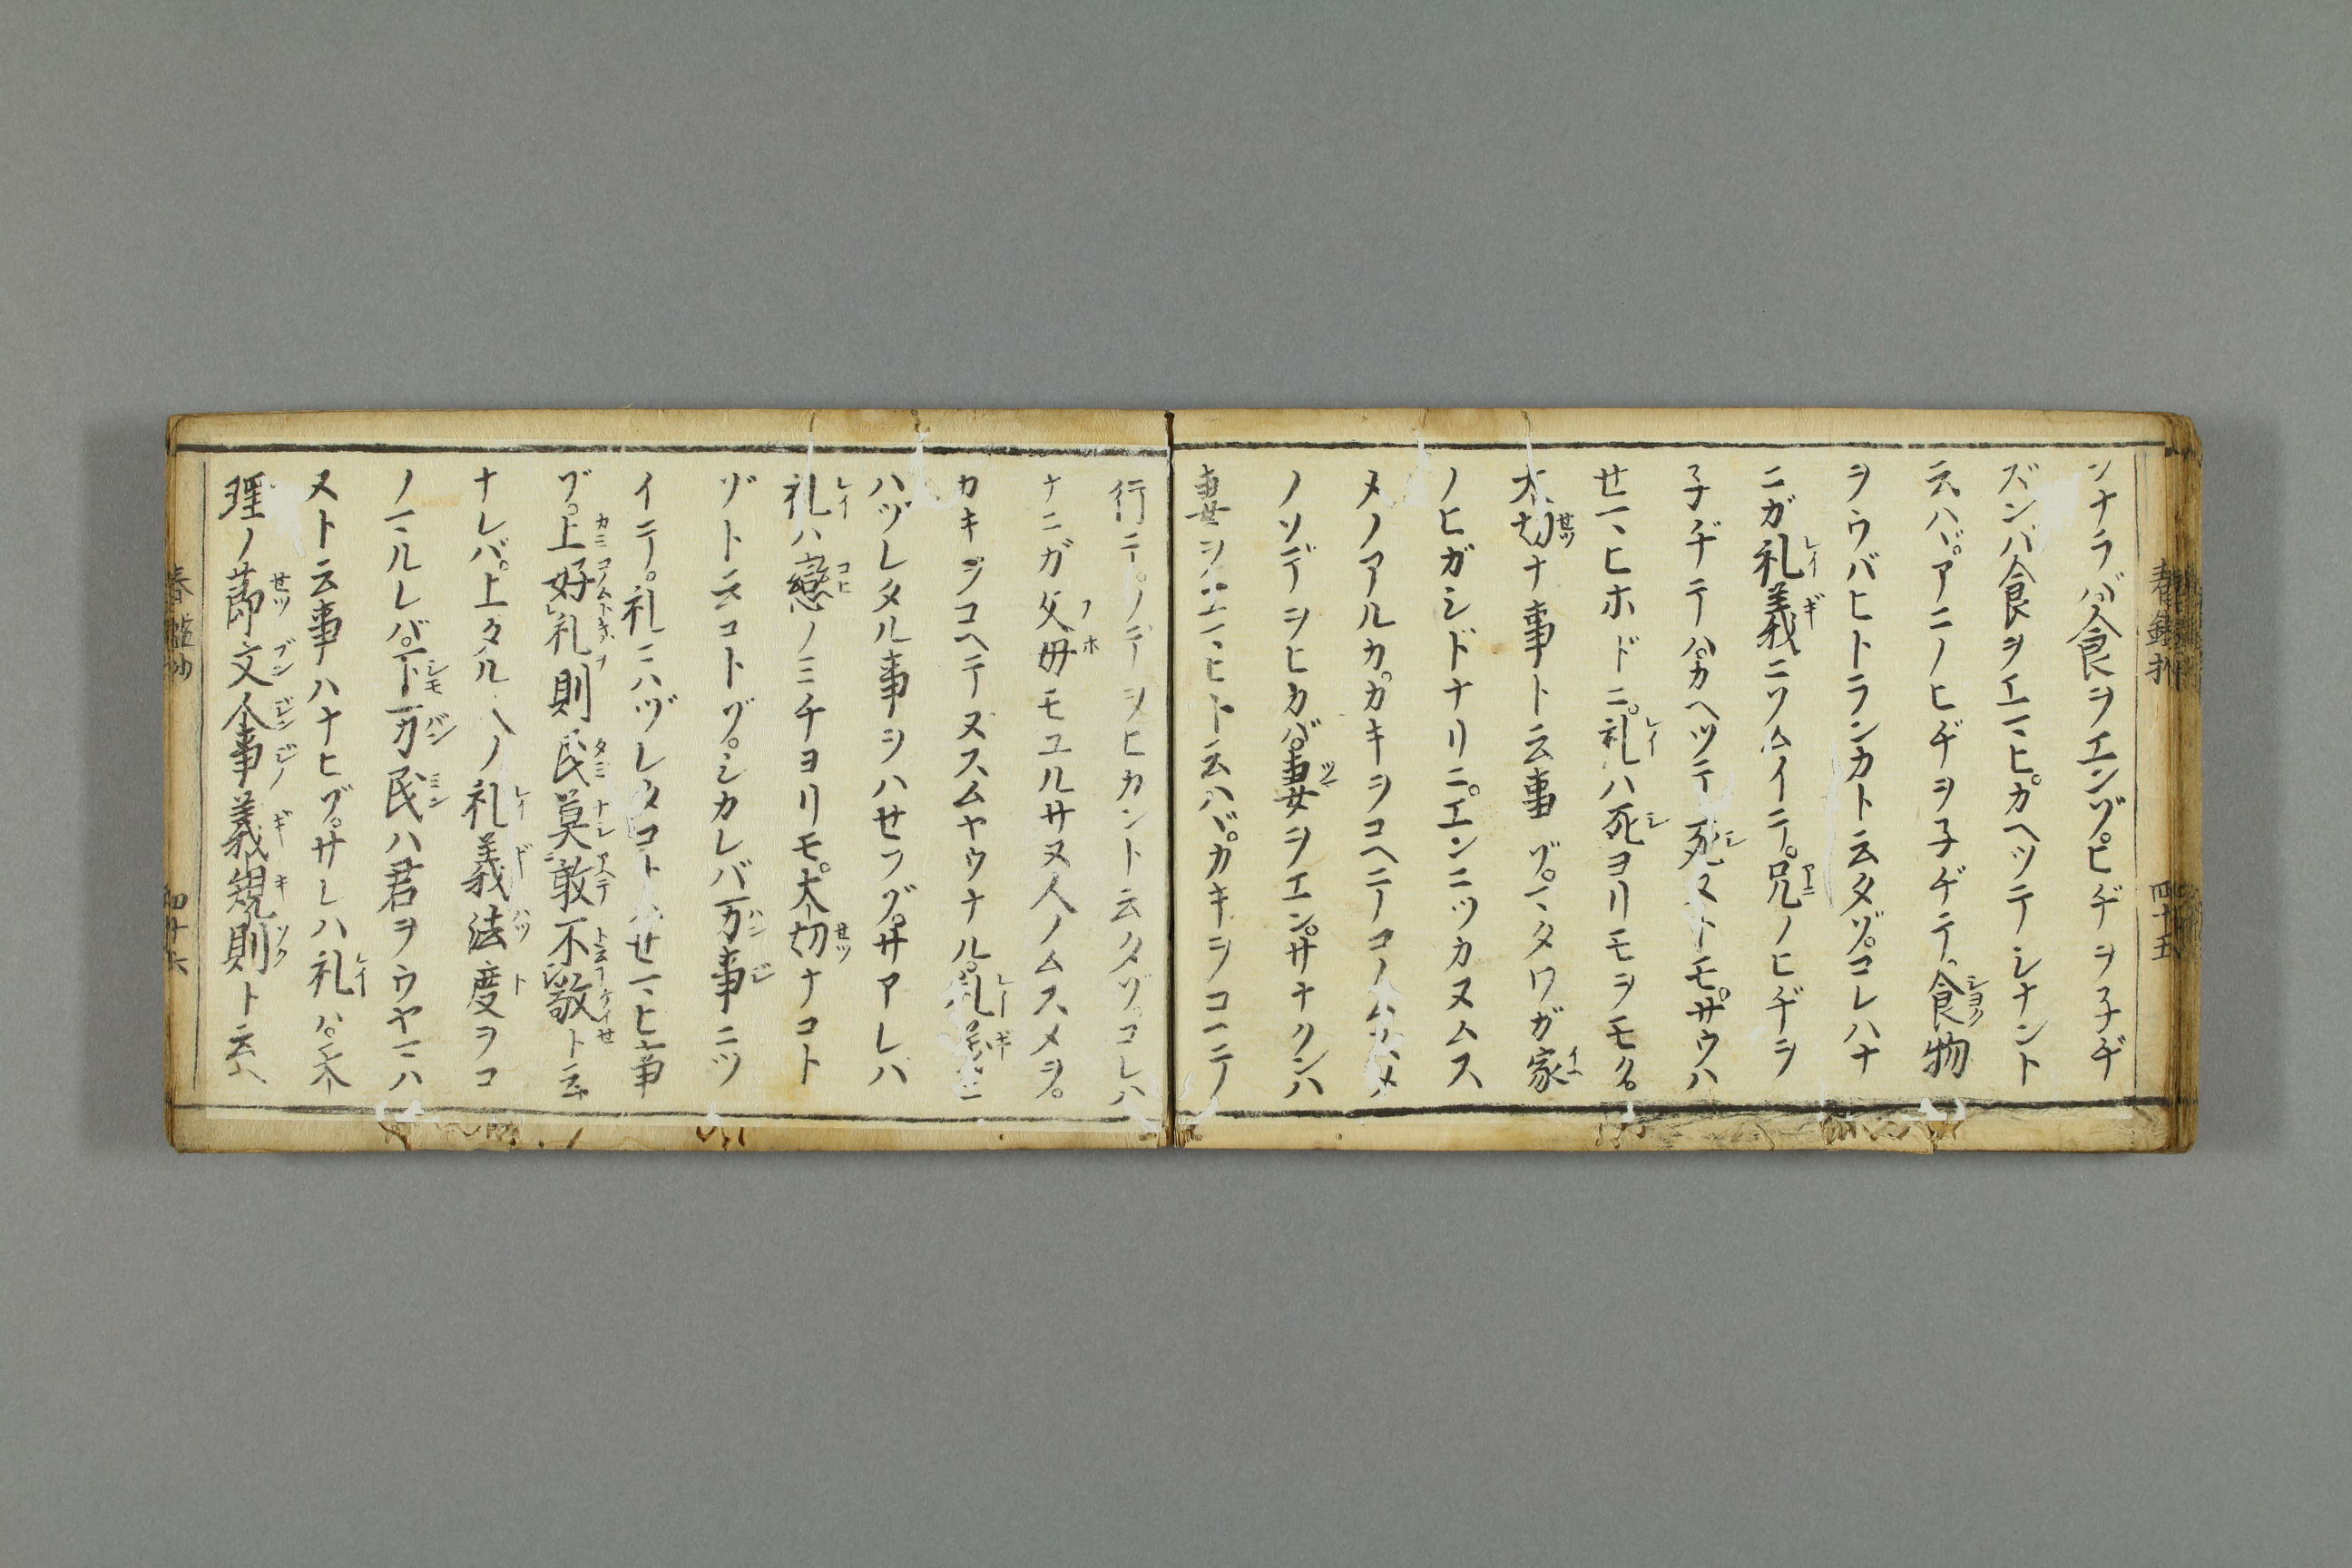 ンナラバ食ヲエンゾ。ヒヂヲ子ヂ
ズンバ食ヲエマヒ。カヘツテシナント
云ハバ。アニノヒヂヲ子ヂテ。食物
ヲウバヒトランカト云タゾ。コレハナ
ニガ礼義ニソムイテ。兄ノヒヂヲ
子ヂテハ。カヘツテ死ストモ。サウハ
セマヒホドニ。礼ハ死ヨリモヲモク。
大切ナ事ト云事ゾ。マタワガ家
ノヒガシドナリニ。エンニツカヌムス
メノアルカ。カキヲコヘテコノムスメ
ノソデヲヒカバ。妻ヲエン。サナクンハ
妻ヲエマヒト云ハバ。カキヲコエテ
行テ。ソデヲヒカント云タゾ。コレハ
ナニガ父母モユルサヌ人ノムスメヲ。
カキヲコヘテヌスムヤウナル。礼義ニ
ハヅレタル事ヲハセツゾ。サアレハ
礼ハ戀ノミチヨリモ。大切ナコト
ゾト云コトゾ。シカレバ万事ニツ
イテ。礼ニハヅレタコトハセマヒ事
ゾ。上好礼則民莫敢不敬ト云
ナレバ。上タル人ノ礼義法度ヲコ
ノマルレバ。下万民ハ君ヲウヤマハ
ヌト云事ハナヒゾ。サレハ礼ハ。天
理ノ節文人事義規則ト云ヘ
春鑑抄
四十五
春鑑抄
四十六